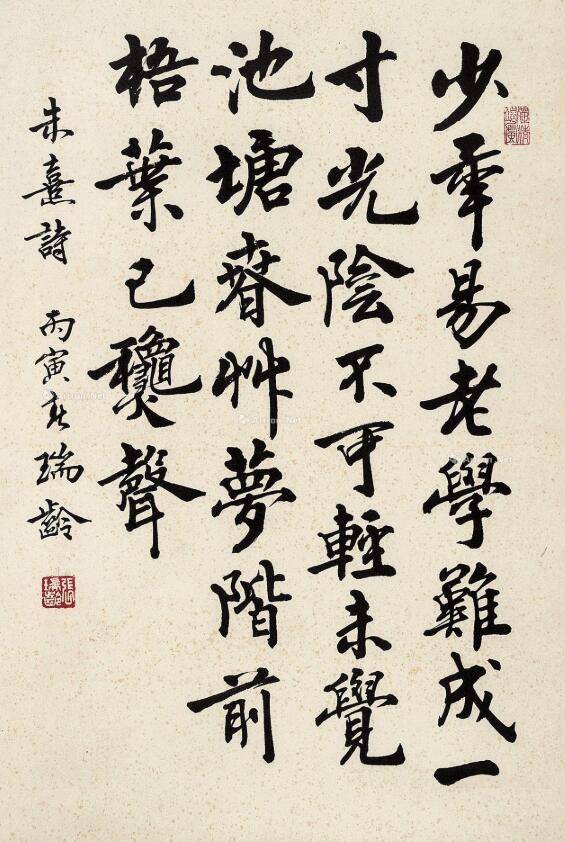 少年易老學難成一
寸光陰不可輕未覺
池塘春艸夢階前
梧葉已龝聲
朱熹詩 丙寅春瑞齡